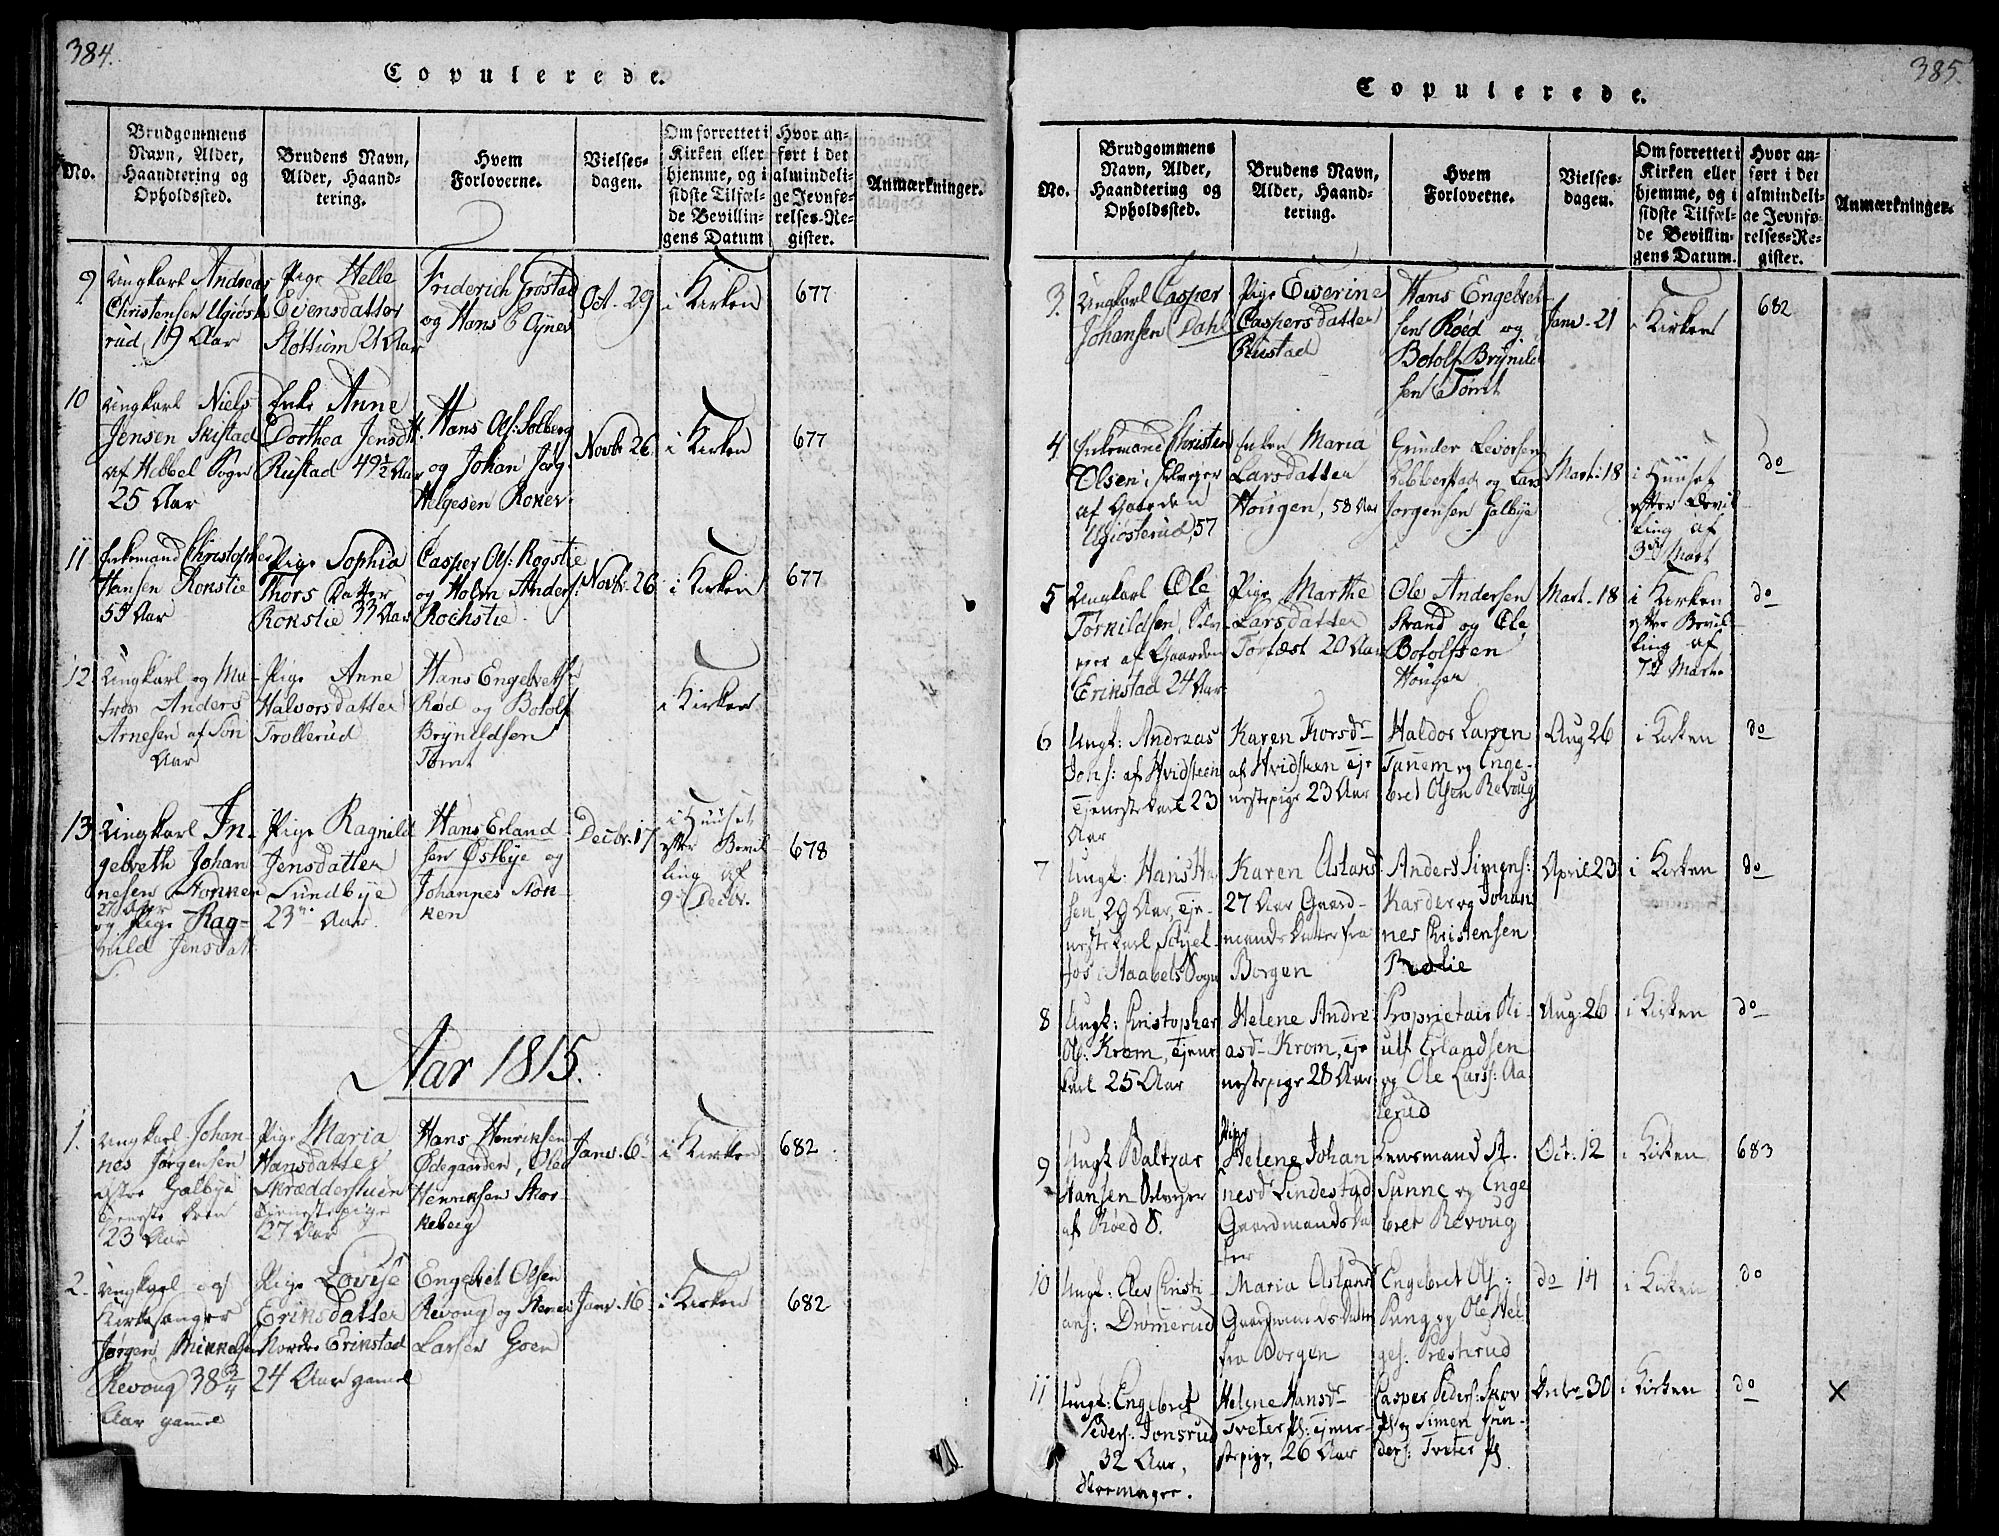 384.
Copulerede.
No.
Brudgommens
Navn, Alder,
Haandtering og
Opholdssted.
Brudens Navn,
Alder, Haand-
tering.
Hvem
Forloverne.
Vielses-
dagen.
Om forrettet i
Kirken eller
hjemme, og i
sidste Tilfæl-
de Bevillin-
gens Datum
Hvor an-
ført i det
almindeli-
ge Jevnfø-
relses-Re-
gister.
Anmærkninger.
9
Ungkarl Andreas
Christensen Ugiøste
rud, 19 Aar
Pige Helle
Evensdatter
Støttum 21 Aar
Friderich Grøstad
og Hans E
Oct. 29
i Kirken
677
10
Ungkarl Niels
Jensen Skistad
af Hebbel Sogn
25 Aar
Enke Anne
Dorthea Jensdtr.
Rustad 49½ Aar
Hans Ols: Solberg
og Johan Jørg.
Helgesen Roker
Novbr 26
i Kirken
677
11
Enkemand Christopher
Hansen Rokstie
55 Aar
Pige Sophia
Thors Datter
Rokstie 33 Aar
Casper Ols: Rogstie
og Holm Anders:
Rochstie
Novbr. 26
i Kirken
677
12
Ungkarl og Ma-
tros Anders
Arnesen af Son
Aar
Pige Anne
Halvorsdatter
Trollerud
Hans Engelbreths:
Rød og Botolf
Brynildsen
Tømt
i Kirken
13
Ungkarl In-
gelbreth Johan
nesen Stokken
27 Aar
og Pige Rag-
nild Jensdatt
Pige Ragnild
Jensdatter
Sundbye
23 Aar
Hans Erland
sen Østbye og
Johannes Stok-
ken
Decbr. 17
i Huuset
efter Bevil
ling af
9 Decbr.
678
Aar 1815.
1.
Ungkarl Johan-
nes Jørgensen
østre Galbye
Tjeneste
23 Aar
Pige Maria
Hansdatter
Skrædderstuen
Tjenestepige
27 Aar
Hans Henriksen
Ødegaarden, Ole
Henriksen Skor-
keberg
Janv. 6
i Kirken
682
2.
Ungkarl og
Kirkesanger
Jørgen Mikkelsen
Revoug 38¾
Aar gamel
Pige Lovise
Eriksdatter
Nordre Erikstad
24 Aar gamel
Engebret Olsen
Revoug og
Larsen Goen
Janv. 16
i Kirken
682
385.
Copulerede.
No.
Brudgommens
Navn, Alder,
Haandtering og
Opholdssted.
Brudens Navn,
Alder, Haand-
tering.
Hvem
Forloverne.
Vielses-
dagen.
Om forrettet i
Kirken eller
hjemme, og i
sidste Tilfæl-
de Bevillin-
gens Datum.
Hvor an-
ført i det
almindeli-
ge Jevnfø-
relses-Re-
gister.
Anmærkninger.
3.
Ungkarl Casper
Johansen Dahl
Pige Ewerine
Caspersdatter
Rustad
Hans Engelbret-
sen Røed og
Botolf Brynild
sen Tømt
Janv. 21
i Kirken
682
4
Enkemand Christen
Olsen Selveger
af Gaarden
Ugiøsterud, 57
Enken Maria
Larsdatter
Hougen, 58 Aar
Gunder Levorsen
og Lars
Jorgensen Galbye
Mart. 18
i Huuset
efter Bevil
ling af
3d Mart
do
5
Ungkarl Ole
Torkildsen, Selv
eger af Gaarden
Erikstad 24 Aar
Pige Marthe
Larsdatter
Tortæst 20 Aar
Ole Andersen
Strand og Ole
Botolfsen
Houger
Mart. 18
i Kirken
efter Bevil
ling af
7d Mart.
do
6
Ungk: Andreas
Johs: af Hvidsteen
Tjenestekarl 23
Aar
Karen Thorsdr
af Hvidsteen Tje
nestepige 23 Aar
Haldor Larsen
Tunem og Enge-
bret Olsen Revoug
Aug 26
i Kirken
do
7
Ungk: Hans Ha
sen, 20 Aar, Tje-
nestekarl
i Haabels Sogn
Karen Aslaks
27 Aar Gaard-
mands Datter fra
Borgen
Anders Simens:
Karder og Johan
nes Christensen
Rødlie
April 23
i Kirken
do
8
Ungk: Christopher
Ols: Krom, Tjene
karl 25 Aar
Helene Andre
asd. Krom, Tje
nestepige 28 Aar
Proprietair Oli-
ulf Erlandsen
og Ole Larss: Aa-
lerud
Aug: 26
i Kirken
do
9
Ungk. Baltzar
Hansen Selveger
af Røed S.
Pige
Helene Johan
nesd. Lindestad
Gaardmands Da
tter
Lensmand A.
Sunne og Enge
bret Revoug
Oct. 12
i Kirken
683
10
Ungk: Elev Christi-
ans: Drømerud
Maria Aslaks
Gaardmands Datter
fra Borgen
Engebret Ols:
Pung og Ole Hel
ges: Præsterud
do 14
i Kirken
do
11
Ungk: Engebret
Peders: Jonsrud
32 Aar,
Skomager.
Helene Hansdr
Tveter Pl: Tjene-
stepige, 26 Aar
Casper Peders: Skov
Pl og Simen Gun-
ders: Tveter Pl
30
i Kirken
do
X